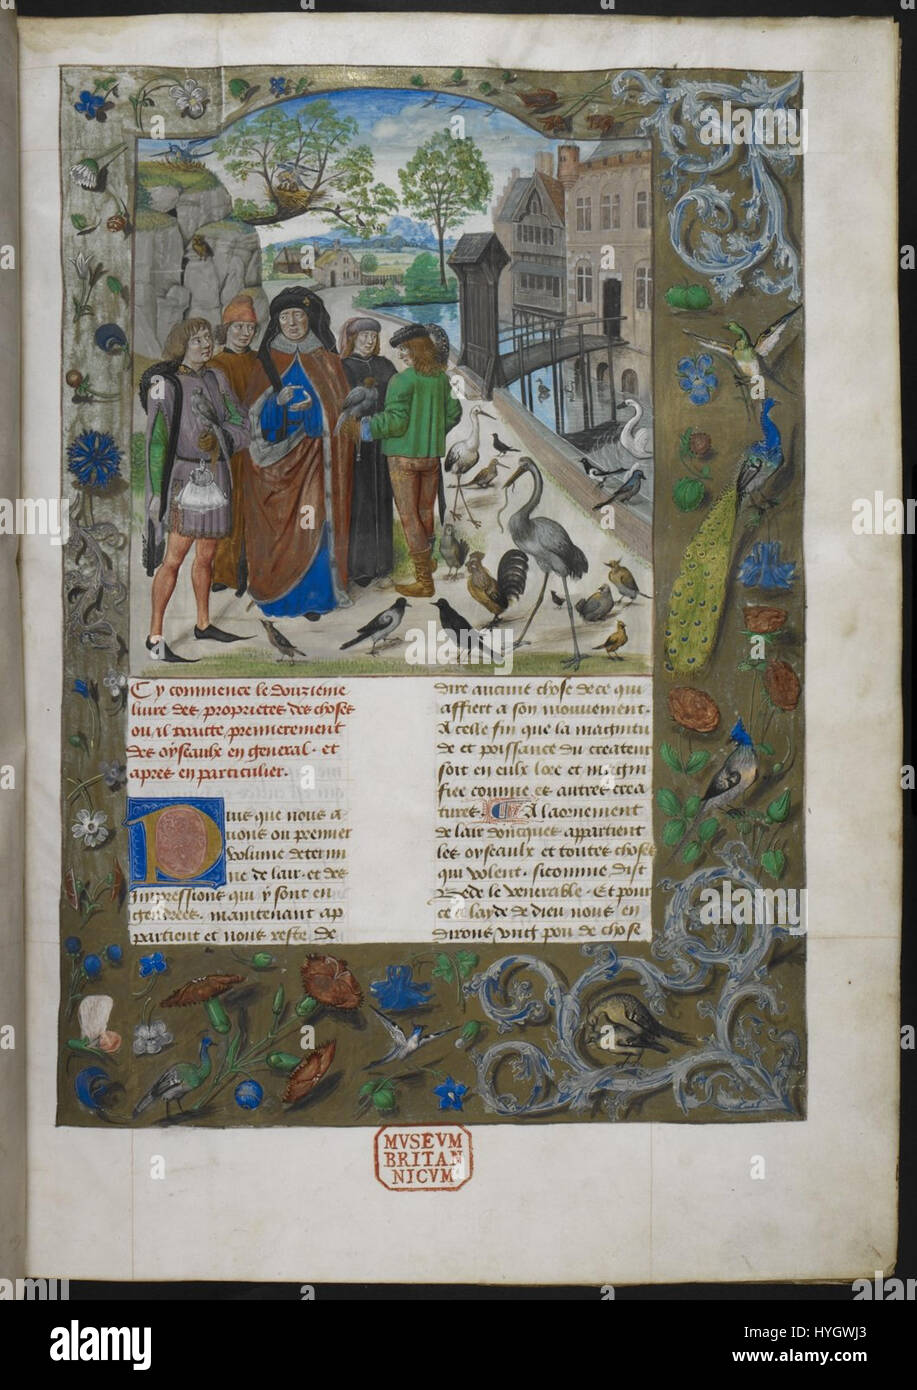 Cy commence le douzieme
livre des proprietes des choses
ou il traitte premierement
des oyseaulx en general · et
apres en particulier ·
Puis que nous a
uons ou premier
volume determi
ne de lair · et des
Impressions qui y sont en
gendrees · maintenant ap
partient et nous reste de
dire aucune chose de ce qui
affiert a son mouuement ·
A celle fin que la magnitu
de et poissance du createur
soit en eulx loee et magni
fiee comme es autres crea
tures · A laornement
de lair doncques appartient
les oyseaulx et toutes choses
qui volent · sicomme dist
Bede le venerable · Et pour
ce a layde de dieu nous en
dirons vng pou de chose
MVSEVM
BRITAN
NICVM
alamy stock photo
HYGWJ3
www.alamy.com